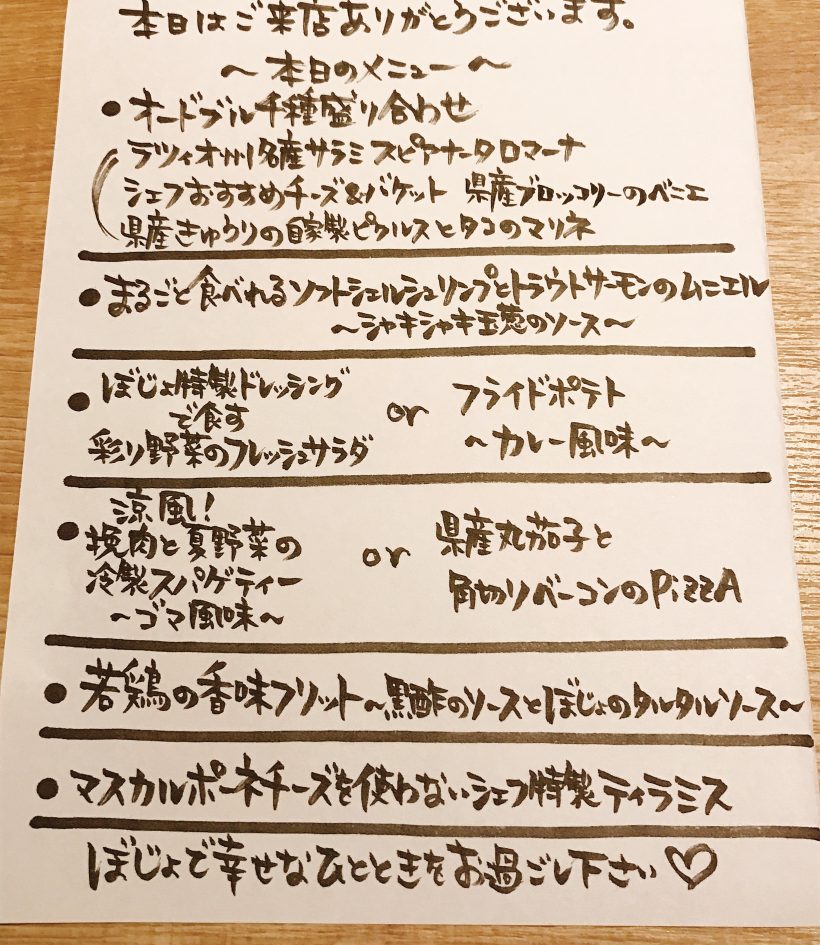 本日はご来店ありがとうございます。
〜本日のメニュー〜
●オードブル千種盛り合わせ
ラツィオ州名産サラミスピアナータロマーナ
シェフおすすめチーズ&バケット 県産ブロッコリーのベニエ
県産きゅうりの自家製ピクルスとタコのマリネ
●まるごと食べれるソフトシェルシュリンプとトラウトサーモンのムニエル
〜シャキシャキ玉葱のソース〜
●ぼじょ特製ドレッシング
で食す
彩り野菜のフレッシュサラダ
or
フライドポテト
〜カレー風味〜
涼風!
●挽肉と夏野菜の
冷製スパゲティー
〜ゴマ風味〜
or
県産丸茄子と
角切りベーコンのPizzA
●若鶏の香味フリット〜黒酢のソースとぼじょのタルタルソース〜
●マスカルポーネチーズを使わないシェフ特製ティラミス
ぼじょで幸せなひとときをお過ごし下さい♡